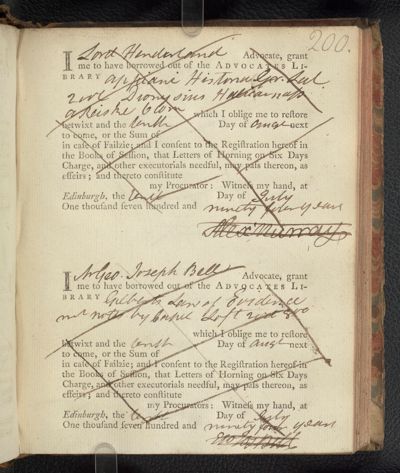 200.
I Lord Henderland Advocate, grant
me to have borrowed out of the ADVOCATES LI-
BRARY Appiani Historia Gr. Lat.
2 vol Dionysius Halicarnass
a Reiske which I oblige me to restore
betwixt and the tenth Day of augt next
to come, or the Sum of
in case of Failzie; and I consent to the Registration hereof in
the Books of Session, that Letters of Horning on Six Days
Charge, and other executorials needful, may pass thereon, as
effeirs; and thereto constitute
my Procurator: Witness my hand, at
Edinburgh, the tenth Day of July
One thousand seven hundred and ninety four years
Alex Murray
I Mr Geo. Joseph Bell Advocate, grant
me to have borrowed out of the ADVOCATES LI-
BRARY Gilberts Law of Evidence
by Capel Loft
which I oblige me to restore
betwixt and the tenth Day of augt next
to come, or the Sum of
in case of Failzie; and I consent to the Registration hereof in
the Books of Session, that Letters of Horning on Six Days
Charge, and other executorials needful, may pass thereon, as
effeirs; and thereto constitute
my Procurators: Witness my hand, at
Edinburgh, the tenth Day of July
One thousand seven hundred and ninety four years
Bell